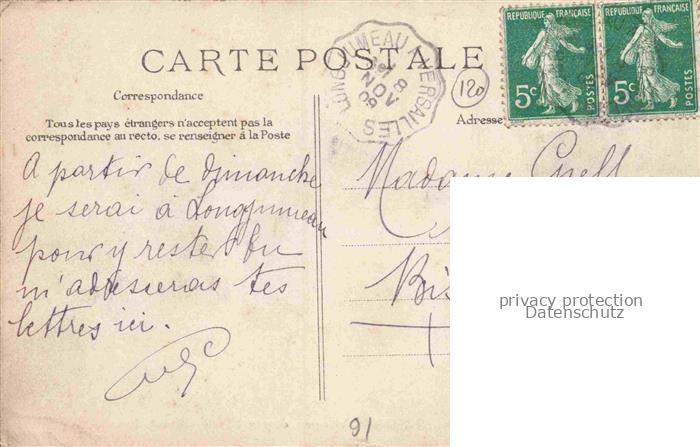 CARTE POSTALE
LONGJUMEAU A VERSAILLES
8 NOV 09
RÉPUBLIQUE FRANÇAISE
5c
POSTES
RÉPUBLIQUE FRANÇAISE
5c
POSTES
120
Correspondance
Tous les pays étrangers n'acceptent pas la
correspondance au recto, se renseigner à la Poste
Adresse
A partir de dimanche
je serai à Longjumeau
pour y rester tu
m'adresseras tes
lettres ici.
Madame
Bis
privacy protection
Datenschutz
91